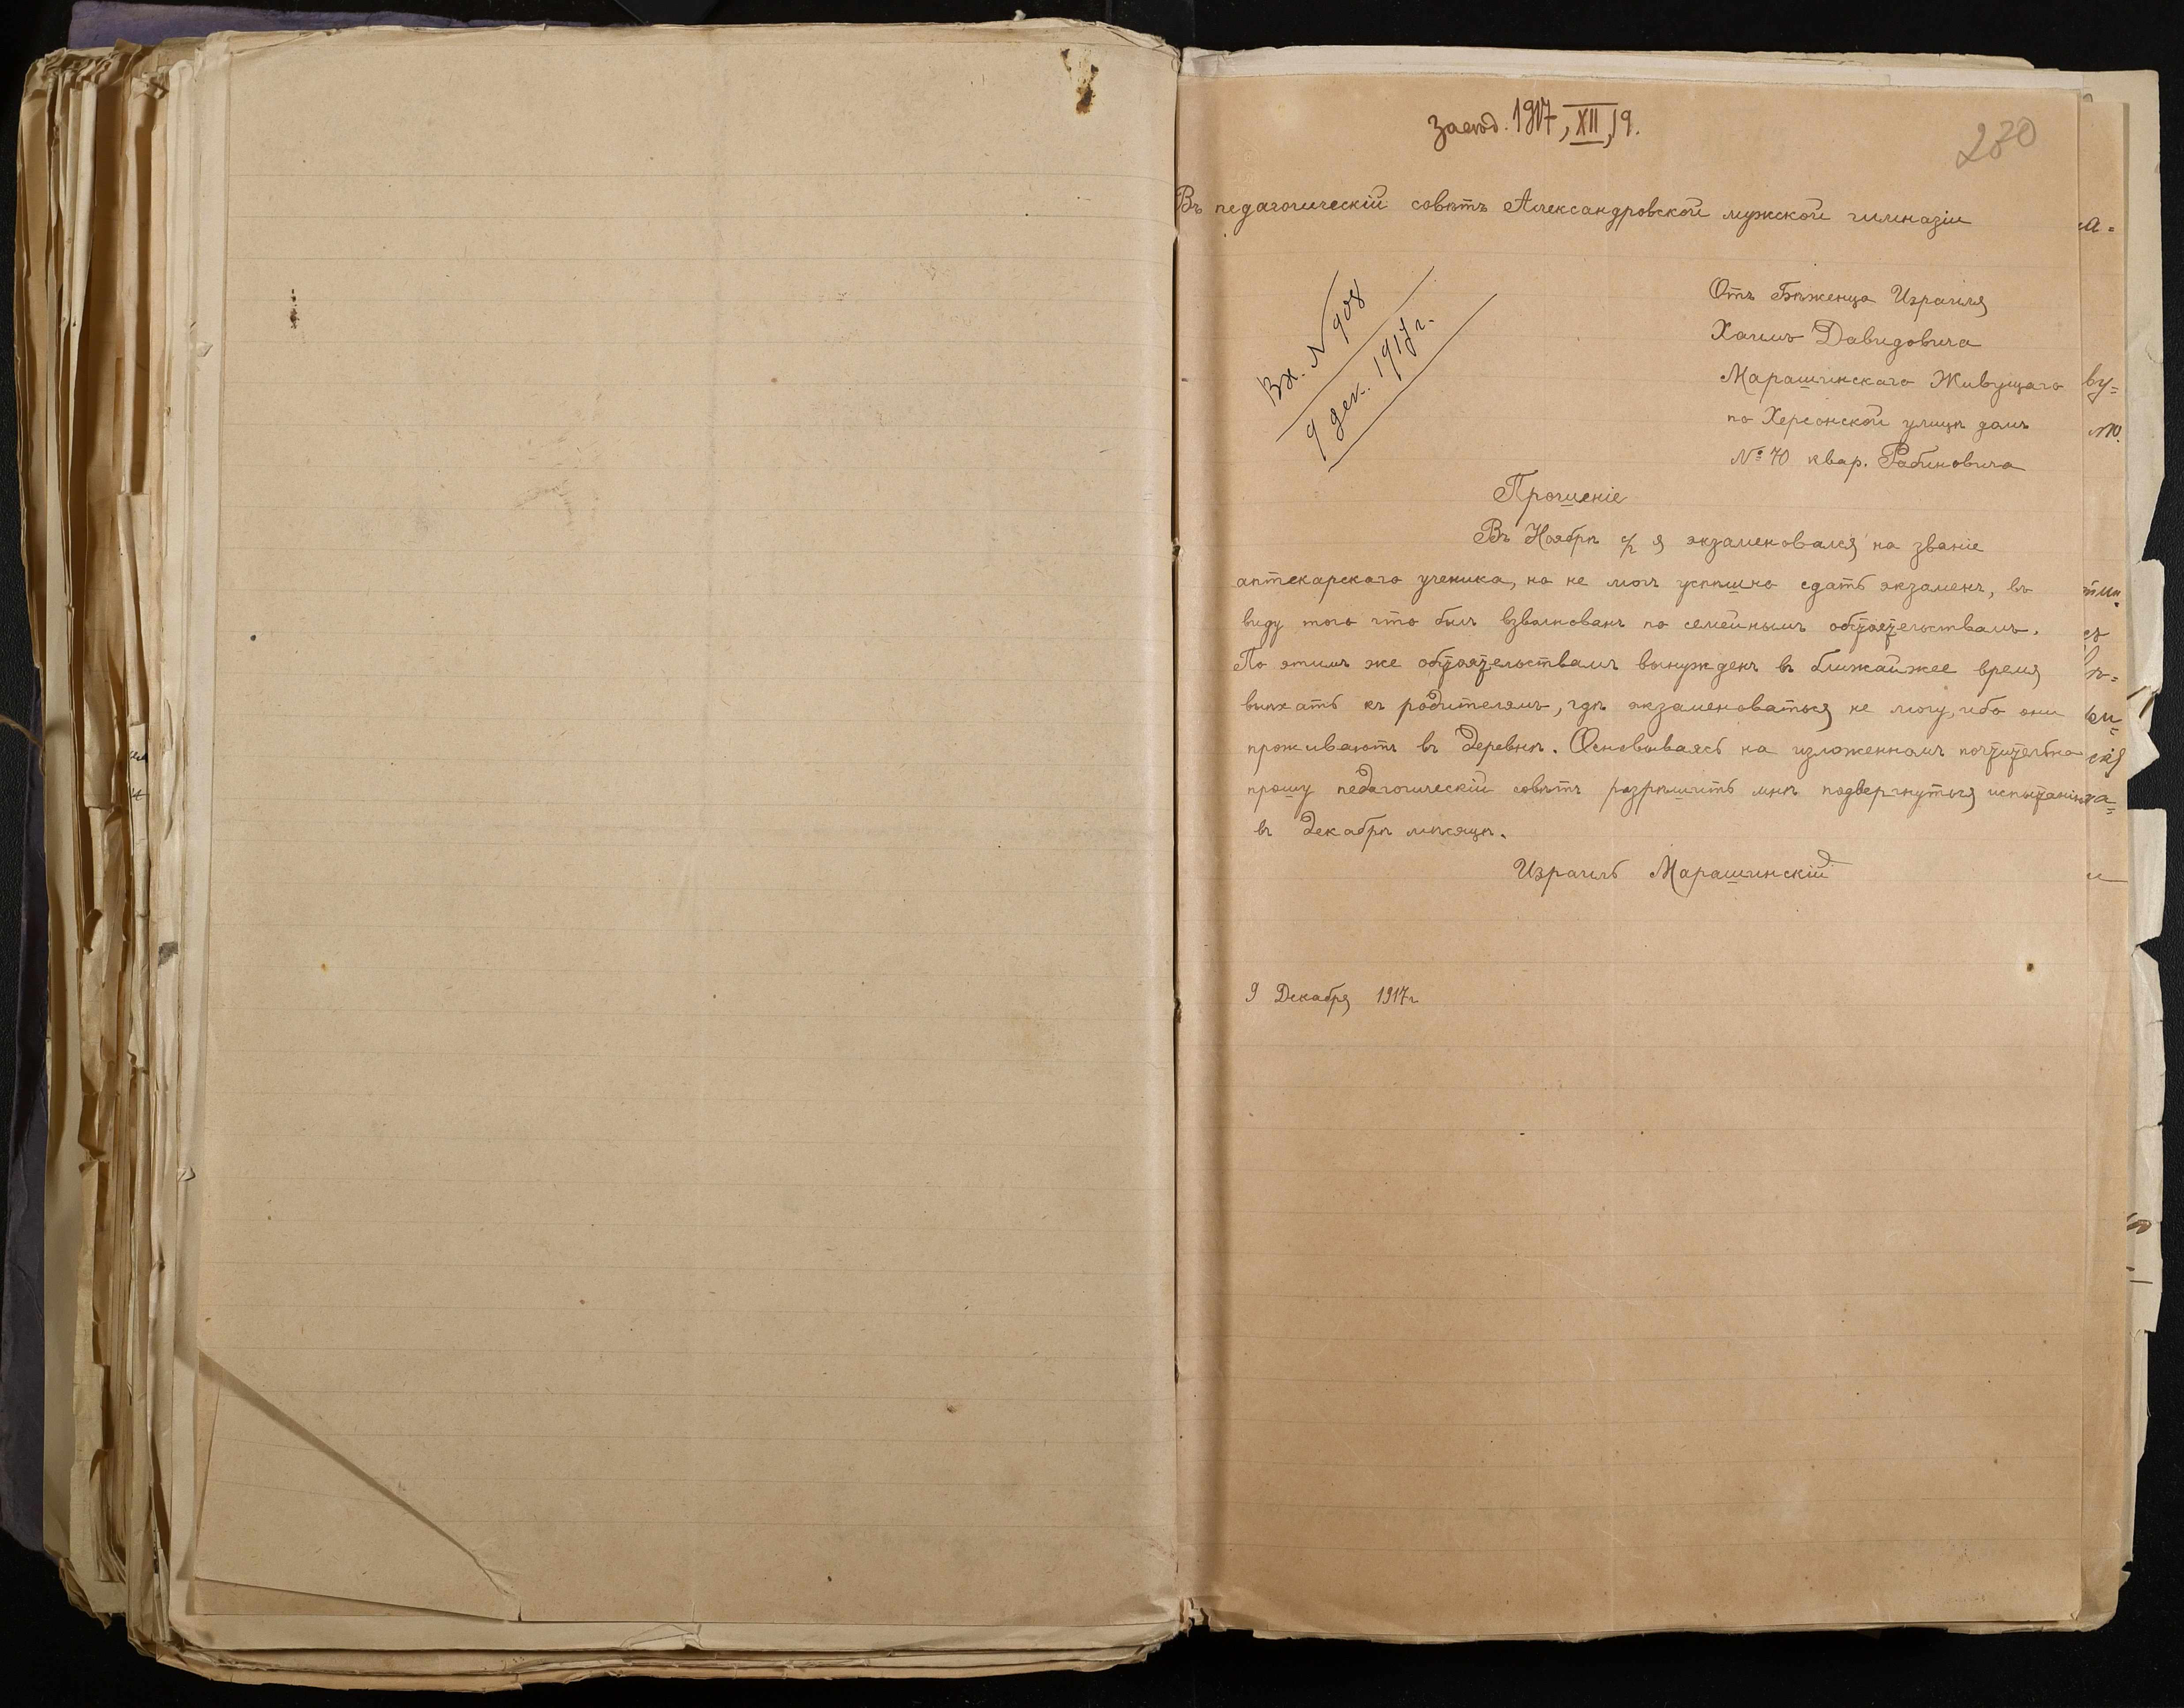 Засѣд. 1917, XII, 19.
230
Въ педагогическій совѣтъ Александровской мужской гимназіи
Вх. № 908
9 дек. 1917 г.
Отъ Бѣженца Израиля
Хаимъ Давидовича
Марашинскаго Живущаго
по Херсонской улицѣ домъ
№ 70 квар. Рабиновича
Прошеніе
Въ Ноябрѣ с/г я экзаменовался на званіе
аптекарскаго ученика, но не могъ успѣшно сдать экзаменъ, въ
виду того что былъ взволнованъ по семейнымъ обстоятельствамъ.
По этимъ же обстоятельствамъ вынужденъ въ ближайжее время
выѣхать къ родителямъ, гдѣ экзаменоваться не могу, ибо они
проживаютъ въ деревнѣ. Основываясь на изложенномъ почтительно
прошу педагогическій совѣтъ разрѣшить мнѣ подвергнуться испытанію
въ Декабрѣ мѣсяцѣ.
Израиль Марашинскій
9 Декабря 1917 г